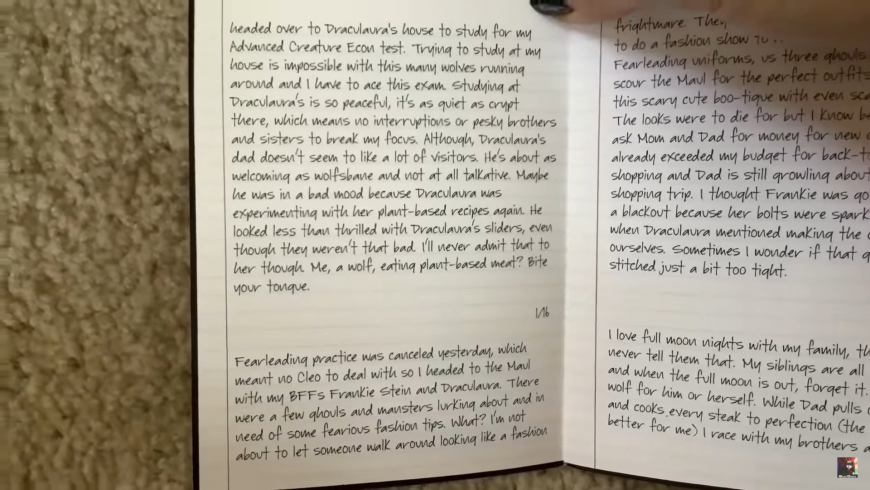 headed over to Draculaura's house to study for my
Advanced Creature Econ test. Trying to study at my
house is impossible with this many wolves running
around and I have to ace this exam. Studying at
Draculaura's is so peaceful, it's as quiet as crypt
there, which means no interruptions or pesky brothers
and sisters to break my focus. Although, Draculaura's
dad doesn't seem to like a lot of visitors. He's about as
welcoming as wolfsbane and not at all talkative. Maybe
he was in a bad mood because Draculaura was
experimenting with her plant-based recipes again. He
looked less than thrilled with Draculaura's sliders, even
though they weren't that bad. I'll never admit that to
her though. Me, a wolf, eating plant-based meat? Bite
your tongue.
1/16
Fearleading practice was canceled yesterday, which
meant no Cleo to deal with so I headed to the Maul
with my BFFs Frankie Stein and Draculaura. There
were a few ghouls and mansters lurking about and in
need of some fearious fashion tips. What? I'm not
about to let someone walk around looking like a fashion
frightmare. The
to do a fashion show
Fearleading uniforms, us three ghouls
scour the Maul for the perfect outfits
this scary cute boo-tique with even
The looks were to die for but I know
ask Mom and Dad for money for new
already exceeded my budget for back-
shopping and Dad is still growling about
shopping trip. I thought Frankie was
a blackout because her bolts were
when Draculaura mentioned making the
ourselves. Sometimes I wonder if that
stitched just a bit too tight.
I love full moon nights with my family,
never tell them that. My siblings are all
and when the full moon is out, forget it.
wolf for him or herself. While Dad pulls
and cooks every steak to perfection (the
better for me) I race with my brothers